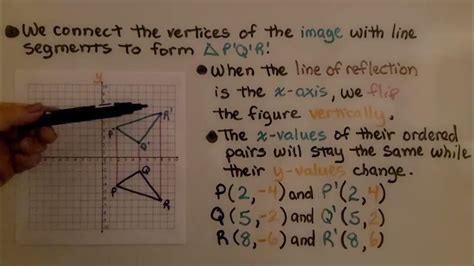 We connect the vertices of the image with line
segments to form △P'Q'R'!
When the line of reflection
is the x-axis, we flip
the figure vertically.
The x-values of their ordered
pairs will stay the same while
their y-values change.
P(2,-4) and P'(2,4)
Q(5,-2) and Q'(5,2)
R(8,-6) and R'(8,6)
y
R'
P'
Q'
Q
P
R